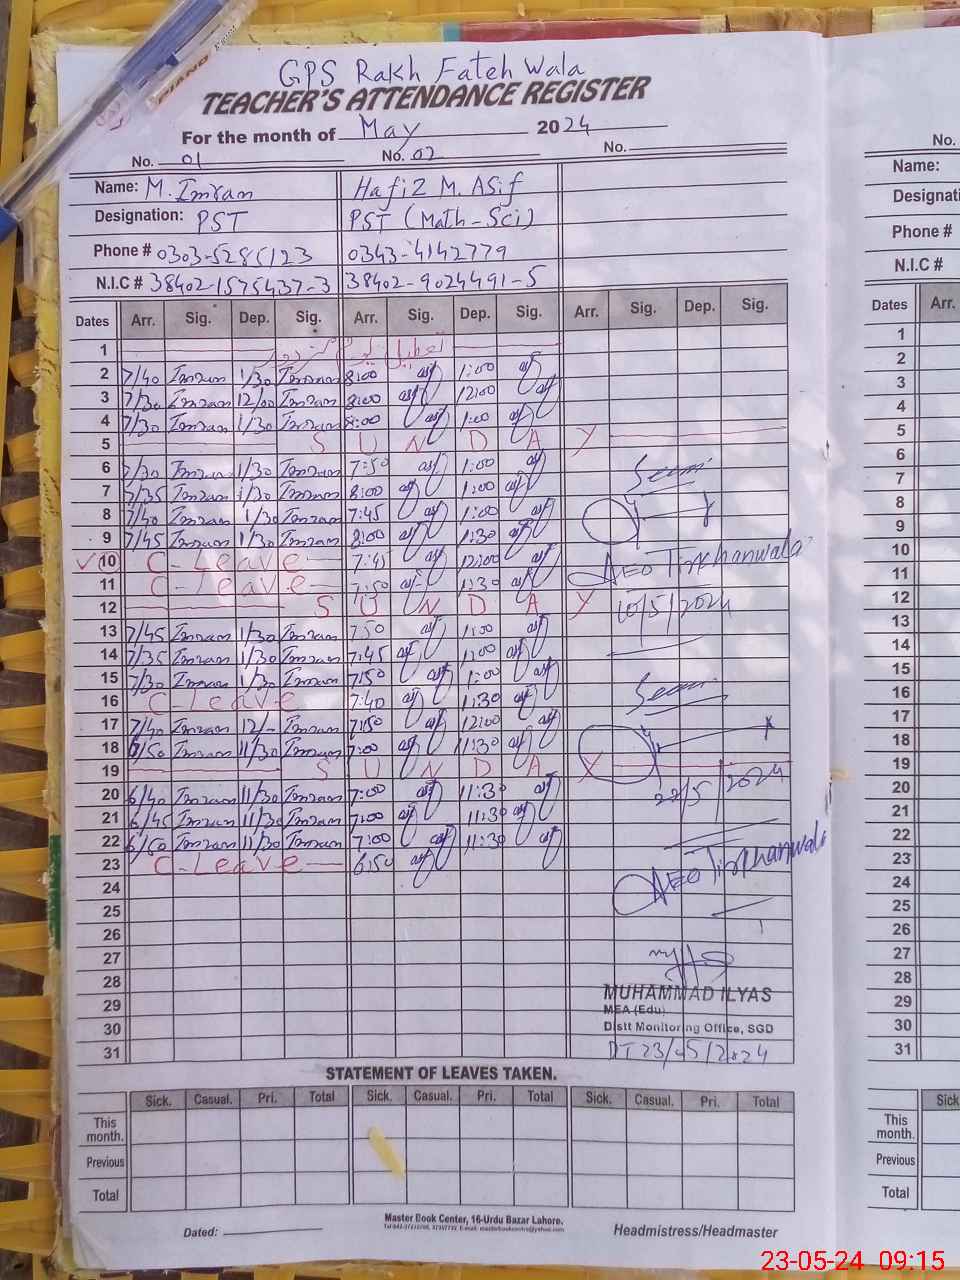 GPS Rakh Fateh Wala
TEACHER'S ATTENDANCE REGISTER
For the month of May 2024
No. 01 No. 02 No.
Name: M. Imran Hafiz M. Asif
Designation: PST PST (Math-Sci)
Phone # 0303-5285123 0343-4142779
N.I.C # 38402-1575437-3 38402-9024491-5
Dates Arr. Sig. Dep. Sig. Arr. Sig. Dep. Sig. Arr. Sig. Dep. Sig.
1 تعطیل یوم مزدور
2 7/40 Imran 1/30 Imran 8:00 asf 1:00 asf
3 7/30 Imran 12/00 Imran 8:00 asf 12:00 asf
4 7/30 Imran 1/30 Imran 8:00 asf 1:00 asf
5 S U N D A Y
6 7/30 Imran 1/30 Imran 7:50 asf 1:00 asf
7 7/35 Imran 1/30 Imran 8:00 asf 1:00 asf
8 7/40 Imran 1/30 Imran 7:45 asf 1:00 asf
9 7/45 Imran 1/30 Imran 8:00 asf 1:30 asf
10 C-Leave 7:45 asf 12:00 asf AEO Tirkhanwala
11 C-Leave 7:50 asf 1:30 asf
12 S U N D A Y 10/5/2024
13 7/45 Imran 1/30 Imran 7:50 asf 1:00 asf
14 7/35 Imran 1/30 Imran 7:45 asf 1:00 asf
15 7/30 Imran 1/30 Imran 7:50 asf 1:00 asf
16 C-Leave 7:40 asf 11:30 asf
17 7/40 Imran 12/- Imran 7:50 asf 12:00 asf
18 6/50 Imran 11/30 Imran 7:00 asf 11:30 asf
19 S U N D A Y
20 6/40 Imran 11/30 Imran 7:00 asf 11:30 asf 22/5/2024
21 6/45 Imran 11/30 Imran 7:00 asf 11:30 asf
22 6/50 Imran 11/30 Imran 7:00 asf 11:30 asf
23 C-Leave 6:50 asf AEO Tirkhanwala
24
25
26
27
28
29 MUHAMMAD ILYAS
MEA (Edu)
30 Distt Monitoring Office, SGD
31 DT 23/05/2024
STATEMENT OF LEAVES TAKEN.
Sick. Casual. Pri. Total Sick. Casual. Pri. Total Sick. Casual. Pri. Total
This month.
Previous
Total
Dated:
Master Book Center, 16-Urdu Bazar Lahore.
Headmistress/Headmaster
No.
Name:
Designati
Phone #
N.I.C #
Dates Arr.
1
2
3
4
5
6
7
8
9
10
11
12
13
14
15
16
17
18
19
20
21
22
23
24
25
26
27
28
29
30
31
Sick
This month.
Previous
Total
PIANO
23-05-24 09:15